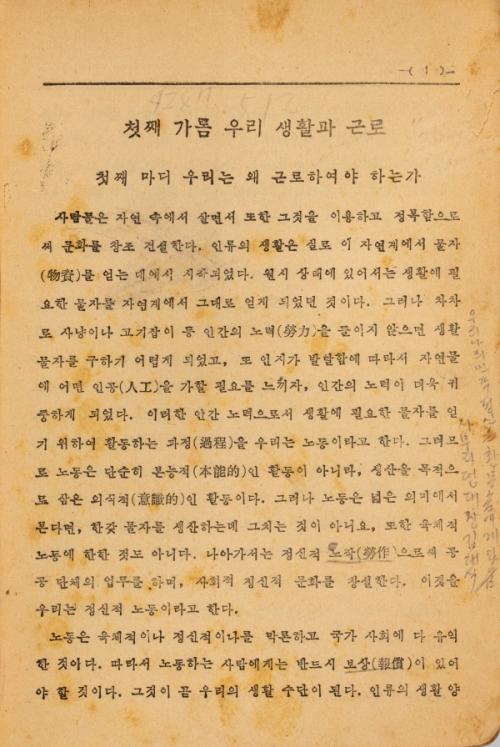 ( 1 )
첫째 가름 우리 생활과 근로
첫째 마디 우리는 왜 근로하여야 하는가
사람들은 자연 속에서 살면서 또한 그것을 이용하고 정복함으로
써 문화를 창조 건설한다. 인류의 생활은 실로 이 자연계에서 물자
(物資)를 얻는 데에서 시작되었다. 원시 상태에 있어서는 생활에 필
요한 물자를 자연계에서 그대로 얻게 되었던 것이다. 그러나 차차
로 사냥이나 고기잡이 등 인간의 노력(勞力)을 들이지 않으면 생활
물자를 구하기 어렵게 되었고, 또 인지가 발달함에 따라서 자연물
에 어떤 인공(人工)을 가할 필요를 느끼자, 인간의 노력이 더욱 귀
중하게 되었다. 이러한 인간 노력으로서 생활에 필요한 물자를 얻
기 위하여 활동하는 과정(過程)을 우리는 노동이라고 한다. 그러므
로 노동은 단순히 본능적(本能的)인 활동이 아니라, 생산을 목적으
로 삼은 의식적(意識的)인 활동이다. 그러나 노동은 넓은 의미에서
본다면, 한갓 물자를 생산하는데 그치는 것이 아니요, 또한 육체적
노동에 한한 것도 아니다. 나아가서는 정신적 노작(勞作)으로써 공
공 단체의 업무를 하며, 사회적 정신적 문화를 창설한다. 이것을
우리는 정신적 노동이라고 한다.
노동은 육체적이나 정신적이나를 막론하고 국가 사회에 다 유익
한 것이다. 따라서 노동하는 사람에게는 반드시 보상(報償)이 있어
야 할 것이다. 그것이 곧 우리의 생활 수단이 된다. 인류의 생활 양